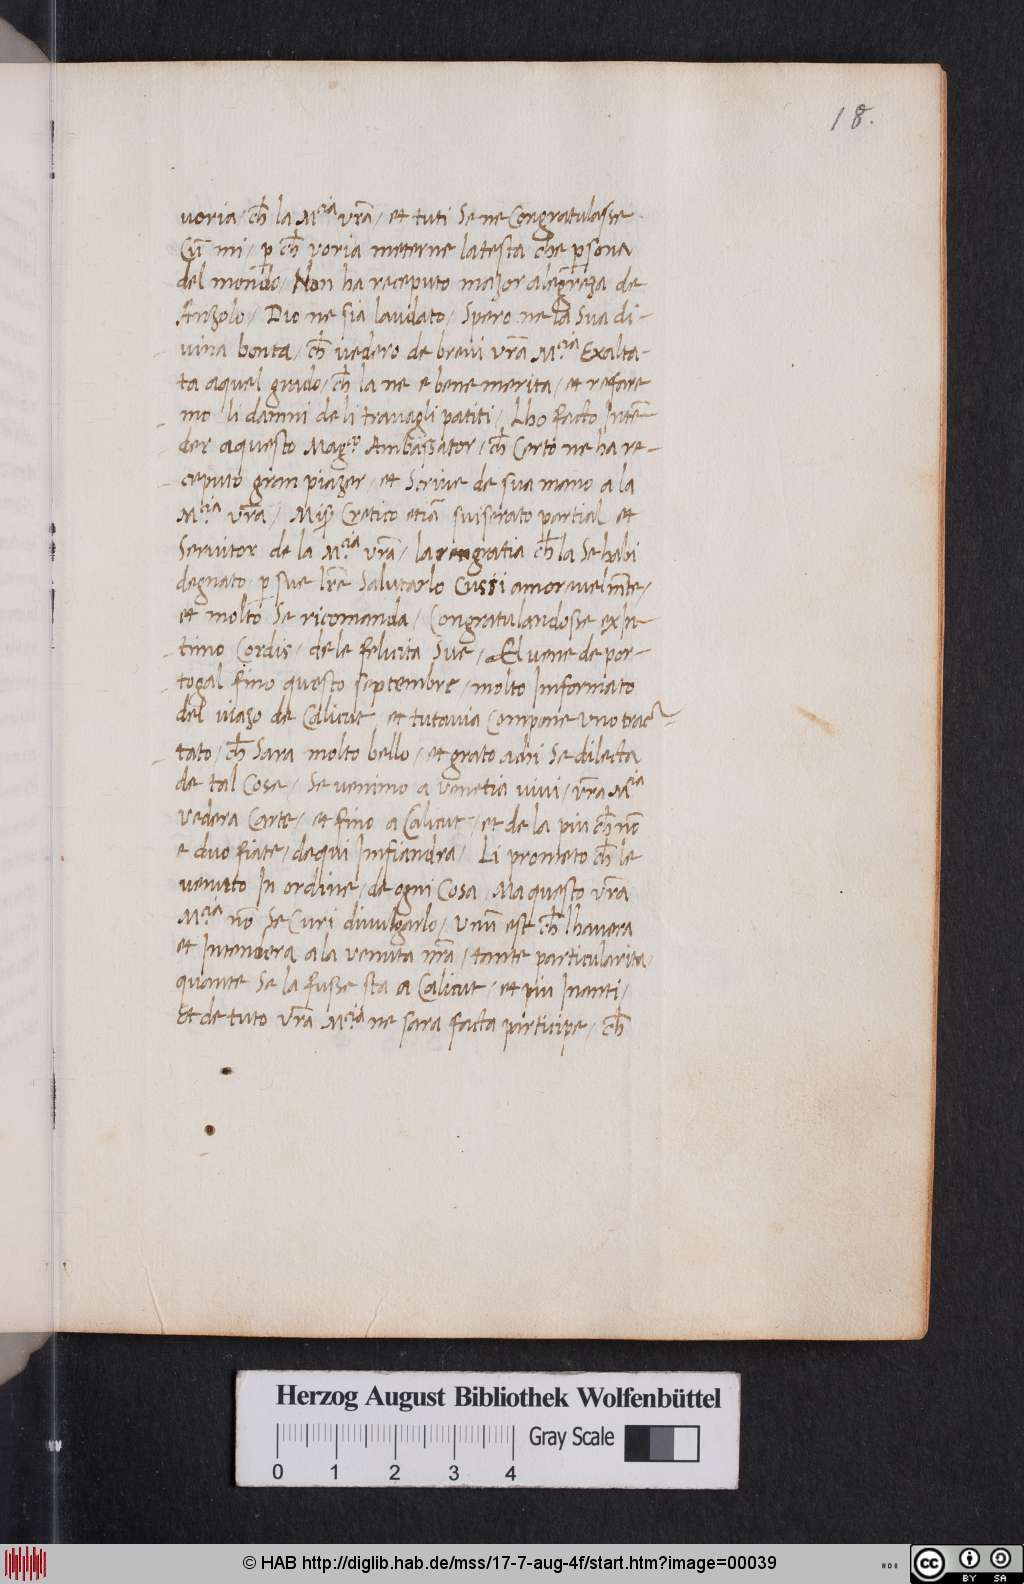 18.
voria / ch̄ la M.cia vr̄a / et tuti Se ne Congratulasse
Cū mi / p ch̄ voria meterne la testa che persona
del mondo / Non ha receputo mazor alegreza de
Anzolo / Dio ne sia laudato / Spero ne la Sua di-
vina bonta / ch̄ vedero de brevi vr̄a M.cia Exalta-
ta aquel grado / ch̄ la ne e bene merita / et refare
mo li damni de li travagli patiti / Lho facto Intē-
der aquesto Mag.co Ambassator / ch̄ Certo ne ha re-
ceputo gran piazer / et Scrive de sua mano a la
M.cia vr̄a / Mis̄ Cretico etiā suiserato partial et
Servitor de la M.cia vr̄a / la ringratia ch̄ la Se habi
degnato p sue lr̄e Salutarlo Cussi amorevelm̄te /
et molto Se ricomanda / Congratulandosse ex In-
timo Cordis / de le felicita Sue / El vene de por-
togal fino questo septembre / molto Informato
del viazo de Calicut et tutavia Compone uno trac-
tato / ch̄ Sara molto bello / et grato achi Se dilecta
de tal Cose / Se venimo a Venetia vivi / vr̄a M.cia
vedera Carte / et fino a Calicut / et de la piu ch̄ nō
e duo fiate / de qui Infiandra / Li prometo ch̄ le
venuto In ordine / de ogni Cosa / Ma questo vr̄a
M.cia nō Se Curi divulgarlo / Unū est ch̄ lhavera
et Intendera a la venuta nr̄a / tante particularita /
quante Se la fusse sta a Calicut / et piu Inanti /
Et de tuto vr̄a M.cia ne sara facta participe / ch̄
Herzog August Bibliothek Wolfenbüttel
Gray Scale
0 1 2 3 4
© HAB http://diglib.hab.de/mss/17-7-aug-4f/start.htm?image=00039
WDB
cc
BY SA